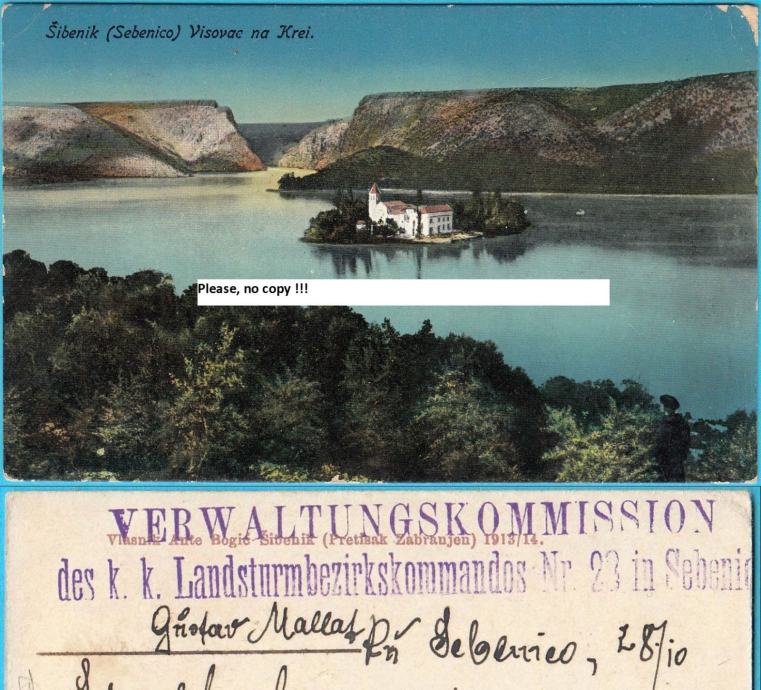 Šibenik (Sebenico) Visovac na Krci.
Please, no copy !!!
VERWALTUNGSKOMMISSION
Vlasnik Ante Bogić Šibenik (Pretisak Zabranjen) 1913/14.
des k. k. Landsturmbezirkskommandos Nr. 23 in Sebenic
Gustav Mallat
Sebenico, 28/10